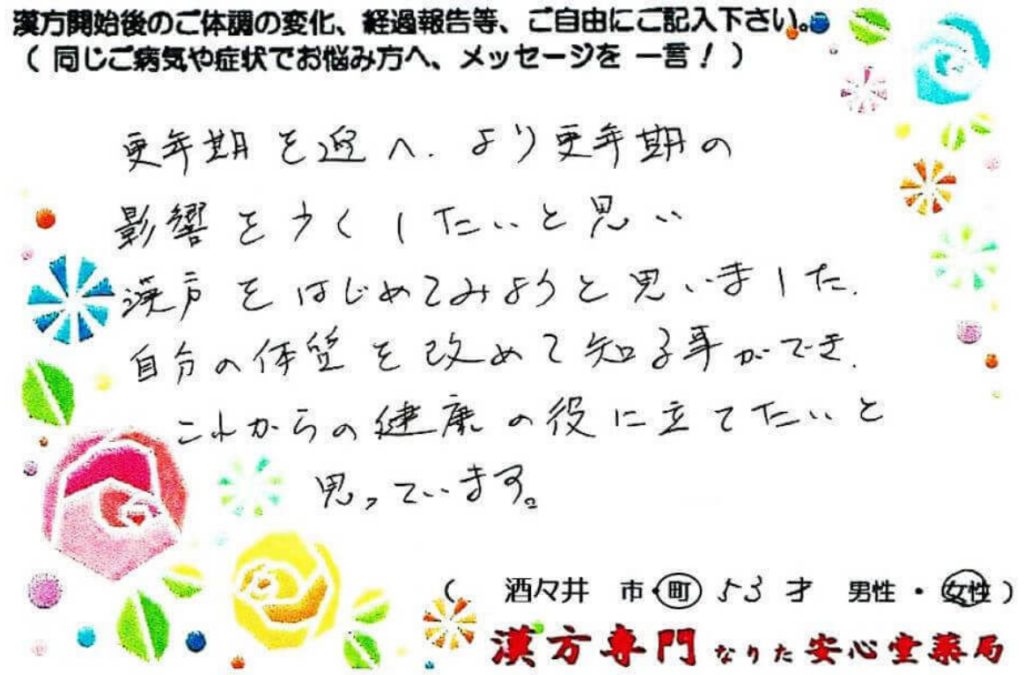 漢方開始後のご体調の変化、経過報告等、ご自由にご記入下さい。
( 同じご病気や症状でお悩み方へ、メッセージを 一言! )
更年期を迎へ、より更年期の
影響を少くしたいと思い
漢方をはじめてみようと思いました.
自分の体質を改めて知る事ができ.
これからの健康の役に立てたいと
思っています。
( 酒々井 市・町 53才 男性・女性 )
漢方専門 なりた 安心堂薬局